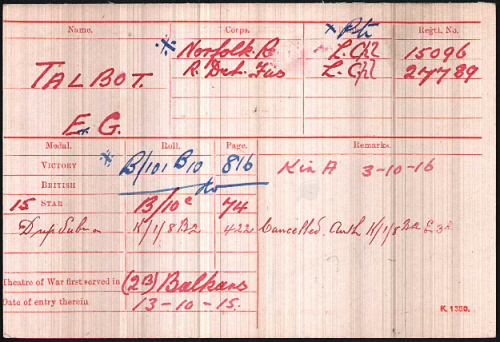 Name. Corps. Regtl. No.
* Norfolk. R × Pte L. Cpl 15096
TALBOT. R. Dub. Fus L. Cpl 27789
E. G.
Medal. Roll. Page. Remarks.
VICTORY * B/101 B10 816 K in A 3-10-16
BRITISH do
15 STAR B/10 c 74
K/1/8 B2 422 Cancelled. Auth K/1/8 B2
Theatre of War first served in (2B) Balkans
Date of entry therein 13-10-15.
K. 1380.